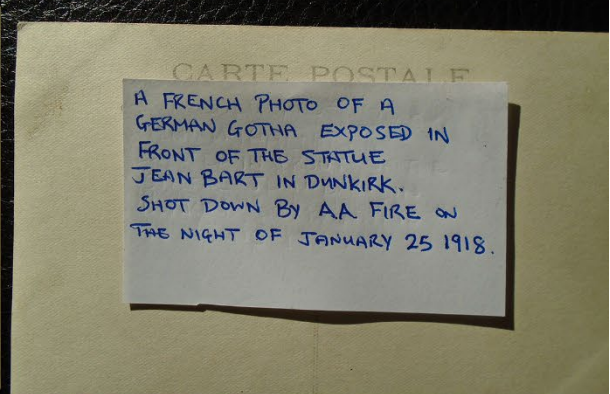 CARTE POSTALE
A FRENCH PHOTO OF A
GERMAN GOTHA EXPOSED IN
FRONT OF THE STATUE
JEAN BART IN DUNKIRK.
SHOT DOWN BY AA FIRE ON
THE NIGHT OF JANUARY 25 1918.